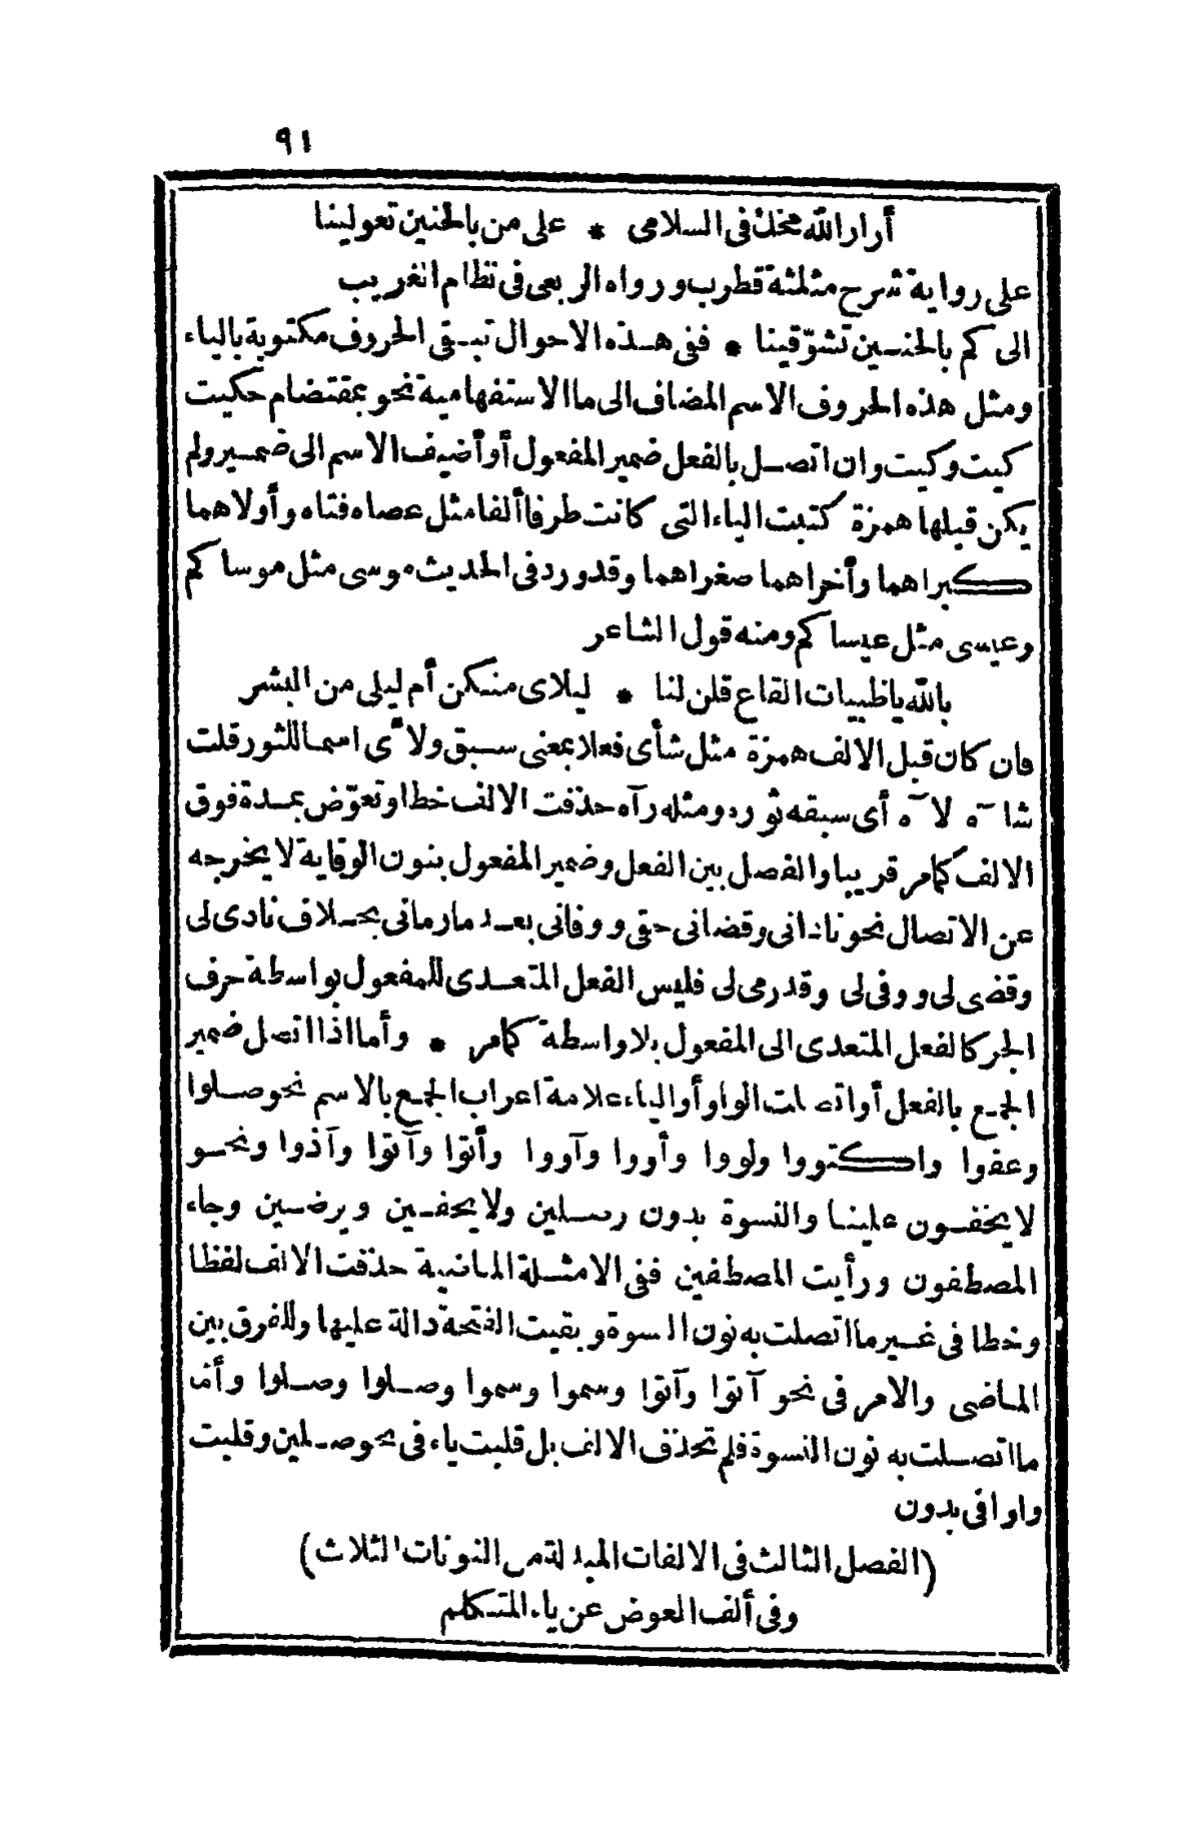 ٩١
أرار الله مخك فى السلامى * على من بالحنين تعولينا
على رواية شرح مثلثة قطرب ورواه الربعى فى نظام الغريب
الى كم بالحنين تشوّقينا * ففى هذه الاحوال تبقى الحروف مكتوبة بالياء
ومثل هذه الحروف الاسم المضاف الى ما الاستفهامية نحو بمقتضام حكيت
كيت وكيت وان اتصل بالفعل ضمير المفعول أو أضيف الاسم الى ضمير ولم
يكن قبلها همزة كتبت الياء التى كانت طرفا ألفا مثل عصاه فتاه وأولاهما
كبراهما وأخراهما صغراهما وقد ورد فى الحديث موسى مثل موسا كم
وعيسى مثل عيسا كم ومنه قول الشاعر
بالله يا ظبيات القاع قلن لنا * ليلاى منكن أم ليلى من البشر
فان كان قبل الالف همزة مثل شأى فعلا بمعنى سبق ولأى اسما للثور قلت
شا~ه لا~ه أى سبقه ثوره ومثله رآه حذفت الالف خطا وتعوّض بمدة فوق
الالف كمامر قريبا والفصل بين الفعل وضمير المفعول بنون الوقاية لا يخرجه
عن الاتصال نحو نادانى وقضانى حقى ووفانى بعد مارمانى بخلاف نادى لى
وقضى لى ووفى لى وقد رمى لى فليس الفعل المتعدى للمفعول بواسطة حرف
الجر كالفعل المتعدى الى المفعول بلا واسطة كمامر * وأما اذا اتصل ضمير
الجمع بالفعل أو اتصلت الواو أو الياء علامة اعراب الجمع بالاسم نحو صلوا
وعفوا واكتووا ولووا وأووا وآووا وأتوا وآتوا وآذوا ونحو
لا يخفون علينا والنسوة يدون رسلين ولا يخفين ويرضين وجاء
المصطفون ورأيت المصطفين ففى الامثلة الماضية حذفت الالف لفظا
وخطا فى غير ما اتصلت به نون النسوة وبقيت الفتحة دالة عليها وللفرق بين
الماضى والامر فى نحو آتوا وآتوا وسموا وسموا وصلوا وصلوا وأما
ما اتصلت به نون النسوة فلم تحذف الالف بل قلبت ياء فى نحو صلين وقلبت
واوا فى يدون
(الفصل الثالث فى الالفات المبدلة من النونات الثلاث)
وفى ألف العوض عن ياء المتكلم